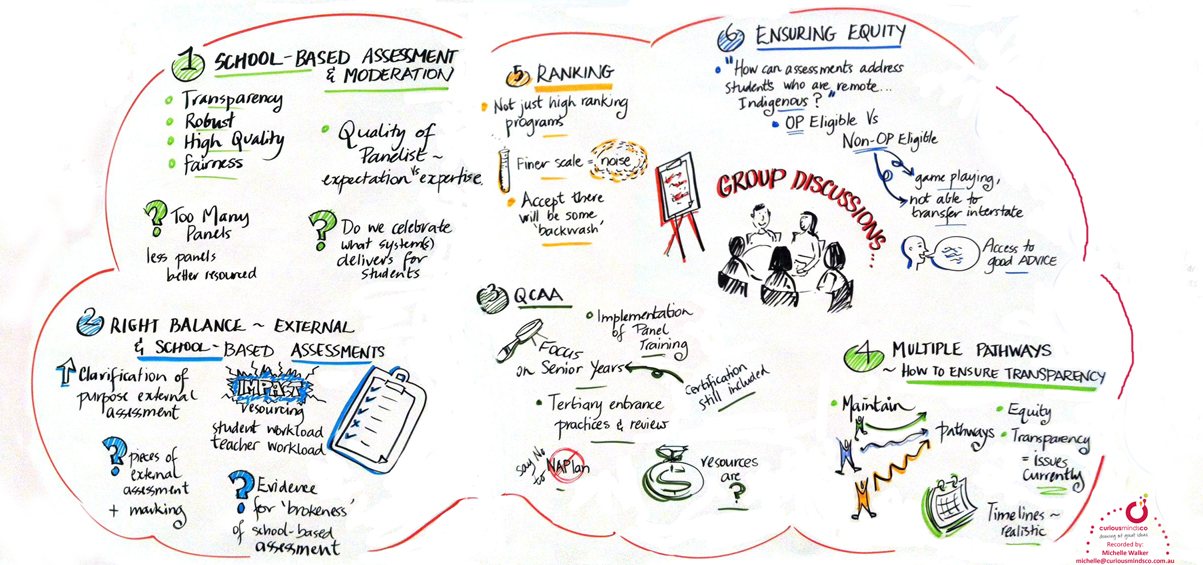 1 SCHOOL-BASED ASSESSMENT
& MODERATION
Transparency
Robust
High Quality
Fairness
Quality of
Panelist ~
expectation vs expertise.
? Too Many
Panels
less panels
better resourced
? Do we celebrate
what system(s)
delivers for
students
2 RIGHT BALANCE ~ EXTERNAL
& SCHOOL-BASED ASSESSMENTS
Clarification of
purpose external
assessment
IMPACT
resourcing
student workload
teacher workload
? pieces of
external
assessment
+ marking
? Evidence
for 'brokeness'
of school-based
assessment
5 RANKING
Not just high ranking
programs
Finer scale = noise
Accept there
will be some
'backwash'
3 QCAA
Implementation
of Panel
Training
FOCUS
on Senior Years
Certification
still included
Tertiary entrance
practices & review
say No
to NAPlan
$
resources
are
?
6 ENSURING EQUITY
"How can assessments address
students who are remote...
Indigenous?"
OP Eligible Vs
Non-OP Eligible
game playing,
not able to
transfer interstate
Access to
good ADVICE
GROUP DISCUSSIONS...
4 MULTIPLE PATHWAYS
~ HOW TO ENSURE TRANSPARENCY
Maintain
pathways
Equity
Transparency
= issues
currently
Timelines ~
realistic
curiousmindsco
drawing out great ideas
Recorded by:
Michelle Walker
michelle@curiousmindsco.com.au